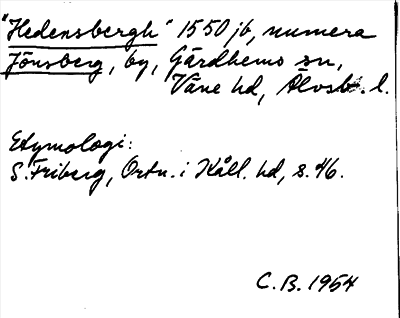 "Hedensbergh" 1550 jb, numera
Jönsberg, by, Gärdhems sn,
Väne hd, Älvsb. l.
Etymologi:
S. Friberg, Ortn. i Kåll. hd, s. 46.
C.B. 1954